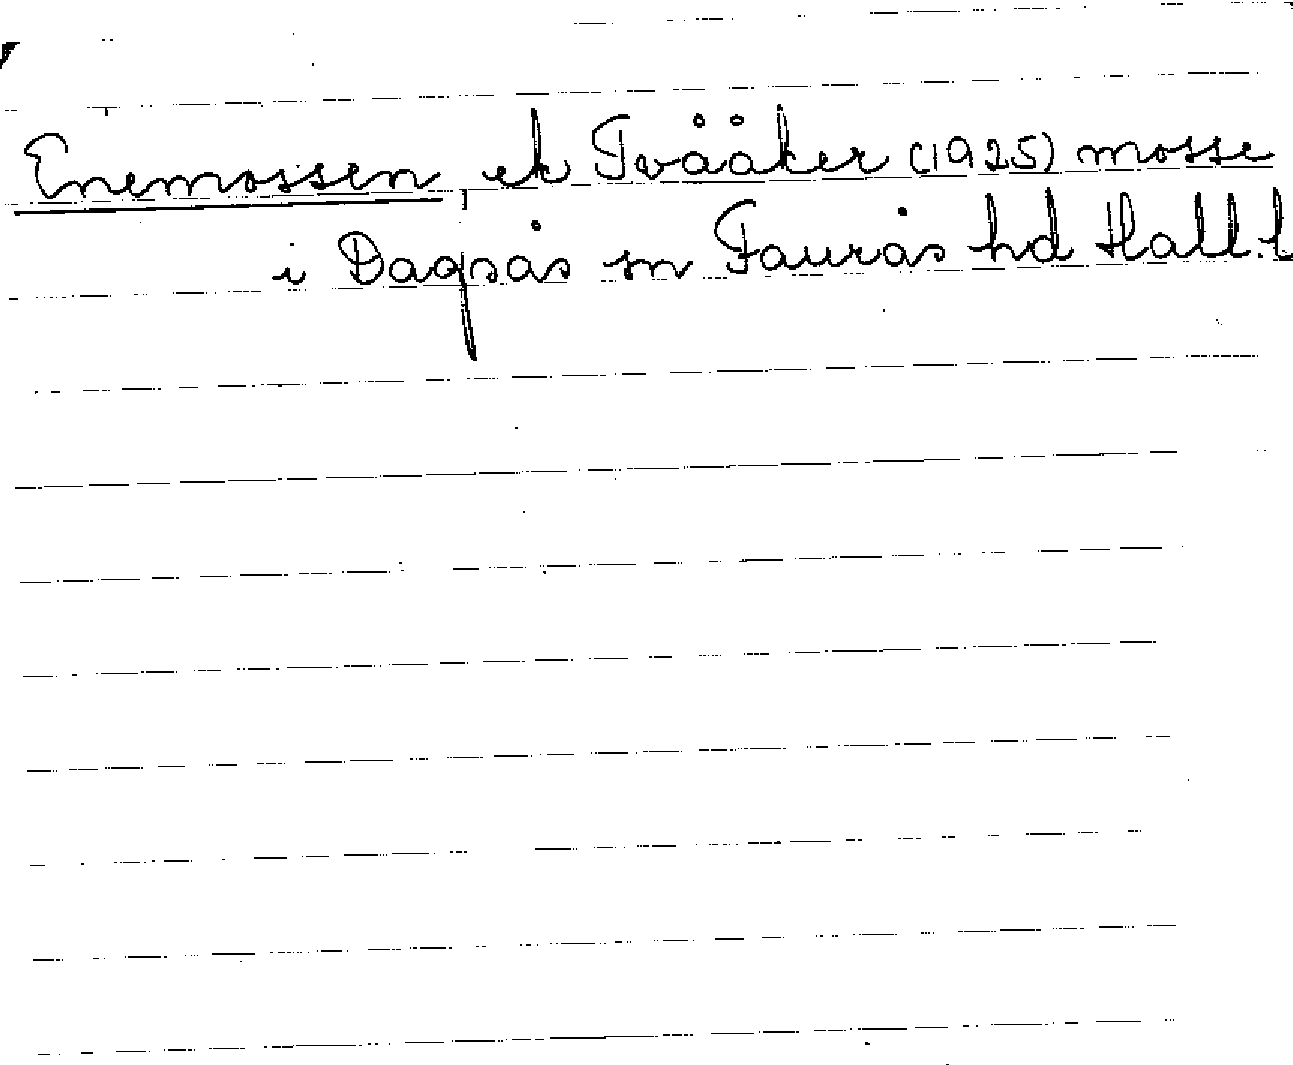 Enemossen, ek Tvååker (1925) mosse
i Dagsås sn Faurås hd Hall.l